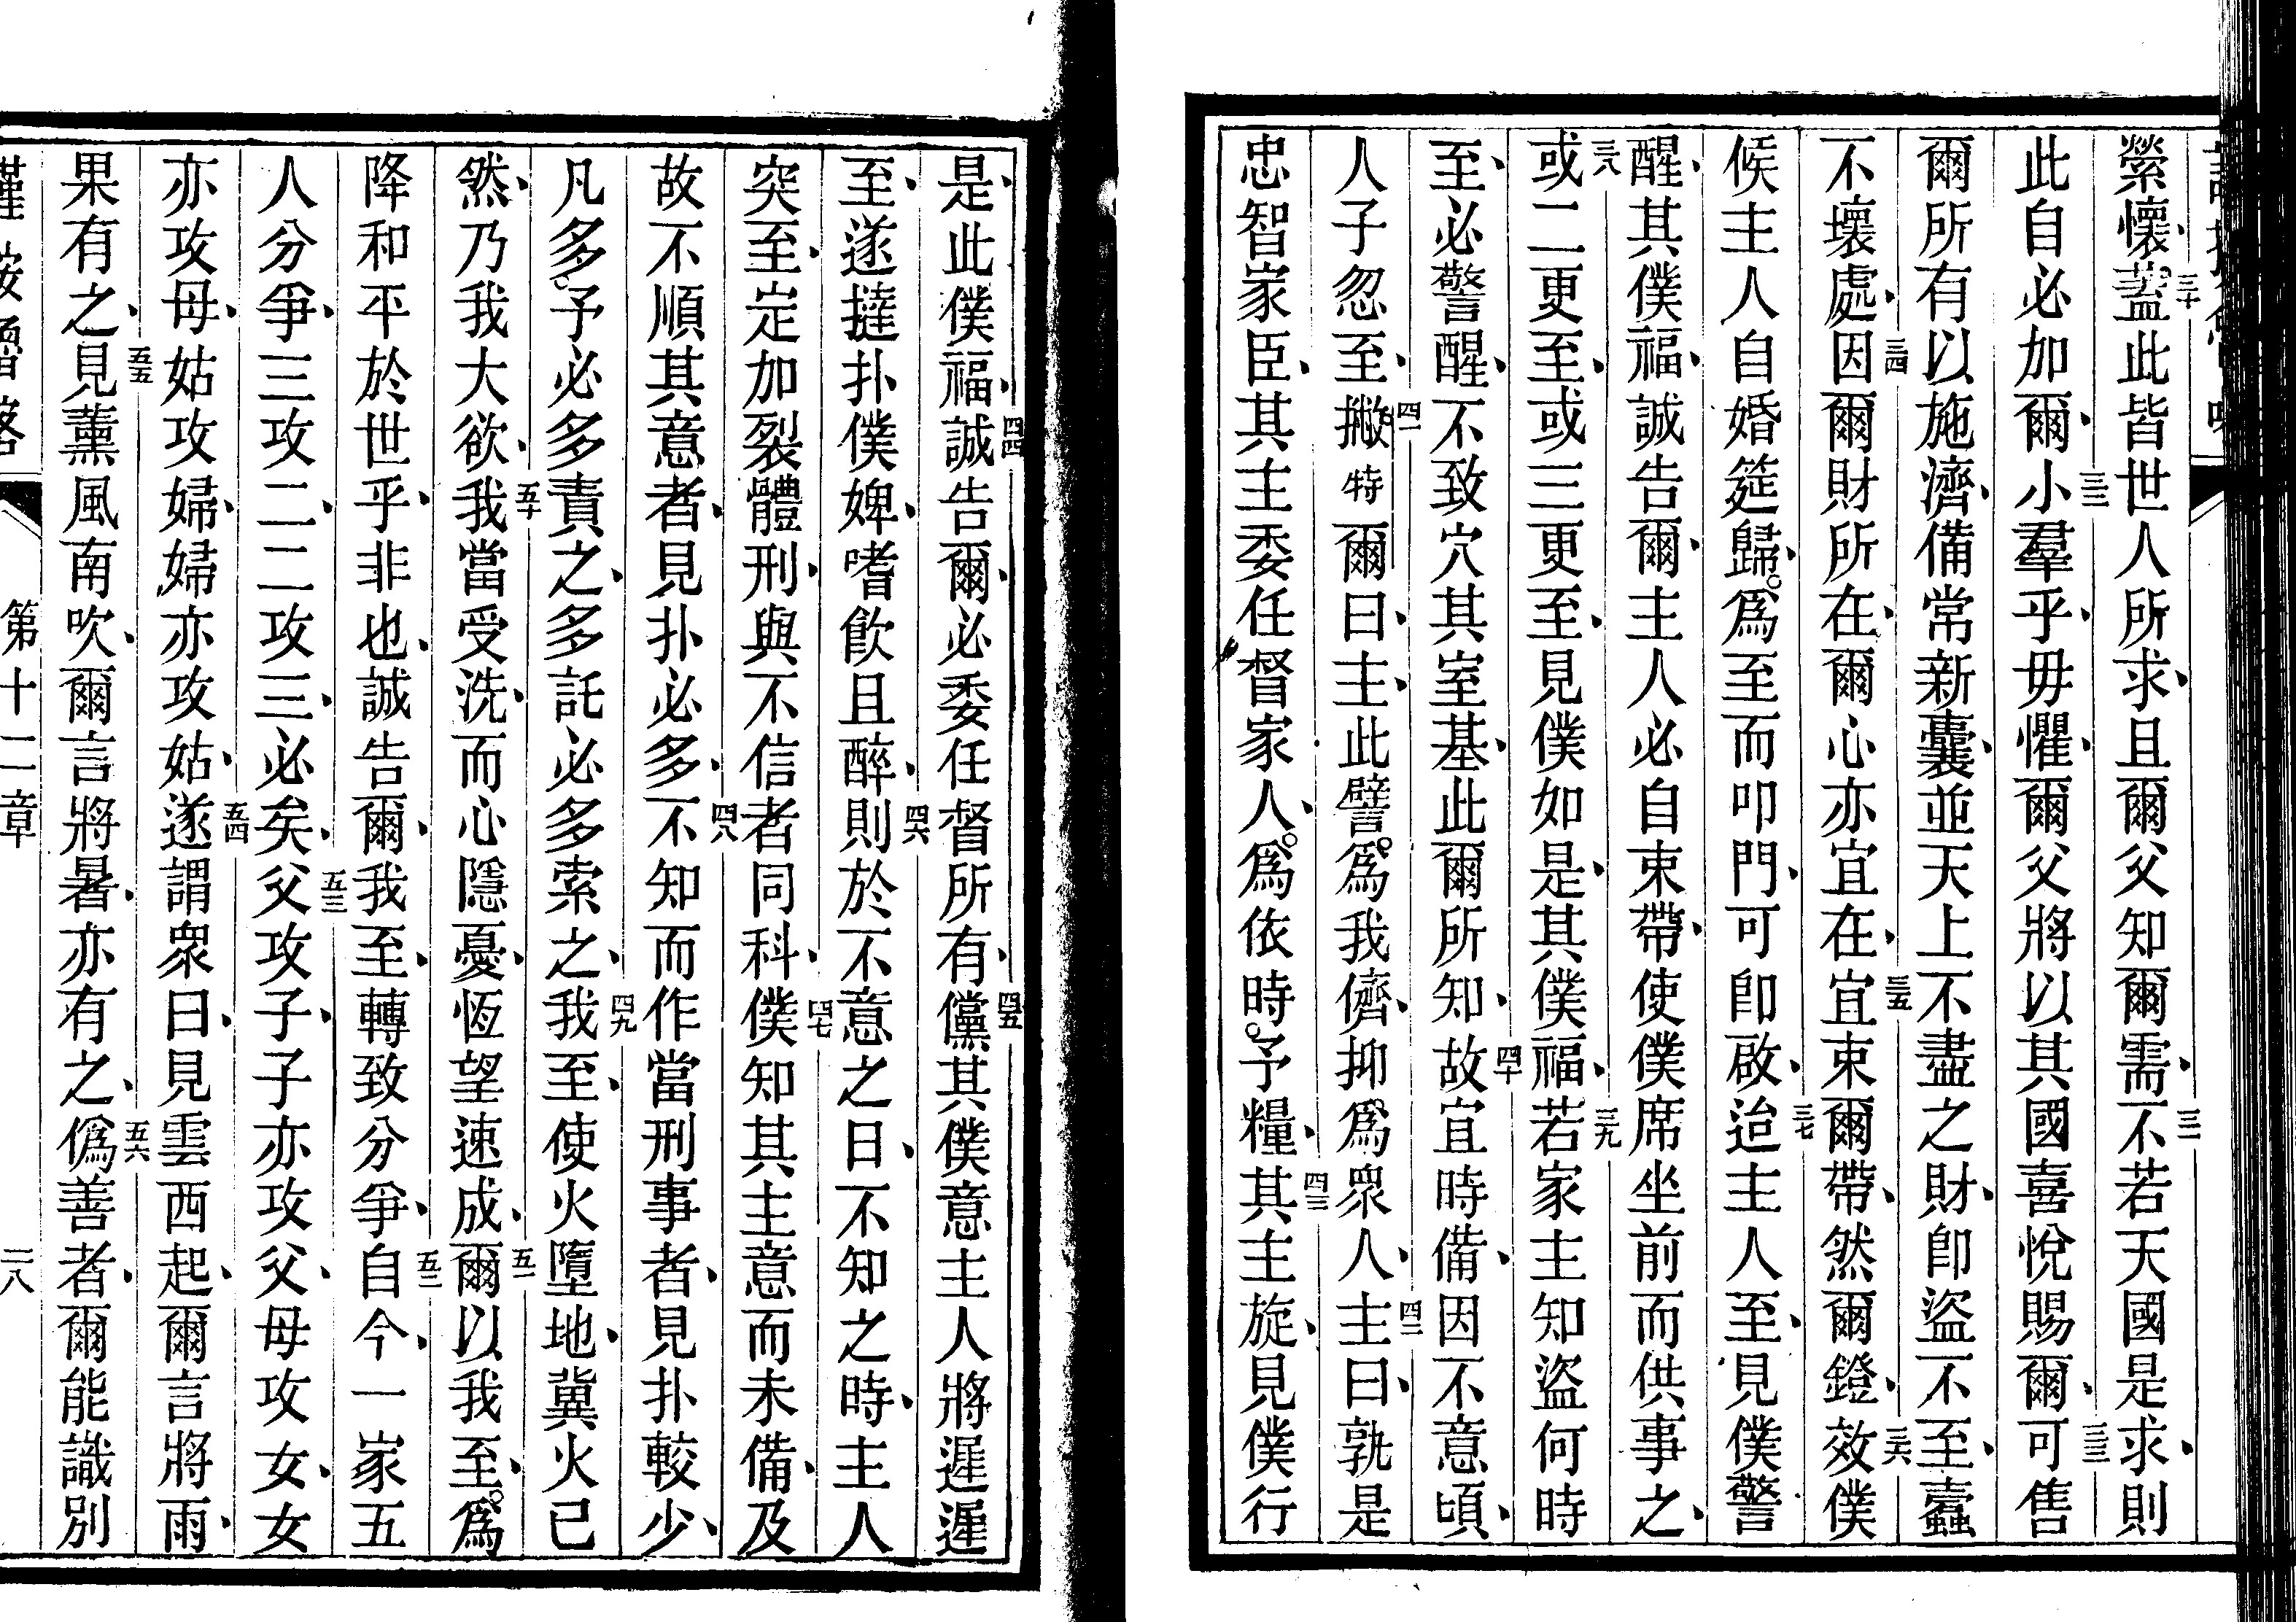 縈懷、蓋三十此皆世人所求、且爾父知爾需、不三一若天國是求、則
此自必加爾、小三二羣乎、毋懼、爾父將以其國喜悅賜爾、可三三售
爾所有以施濟、備常新囊、並天上不盡之財、卽盜不至、蠹
不壞處、因三四爾財所在、爾心亦宜在、宜三五束爾帶、然爾鐙、效三六僕
候主人自婚筵歸、爲至而叩門、可卽啟、迨三七主人至、見僕警
醒、其僕福、誠告爾、主人必自束帶、使僕席坐前而供事之、
三八或二更至、或三更至、見僕如是、其僕福、若三九家主知盜何時
至、必警醒、不致穴其室基、此爾所知、故四十宜時備、因不意頃、
人子忽至、撇四一特爾曰、主、此譬爲我儕、抑爲眾人、主四二曰、孰是
忠智家臣、其主委任督家人、爲依時予糧、其四三主旋、見僕行
是、此僕福、誠四四告爾、必委任督所有、儻四五其僕意主人將遲遲
至、遂撻扑僕婢、嗜飮且醉、則四六於不意之日、不知之時、主人
突至、定加裂體刑、與不信者同科、僕四七知其主意而未備、及
故不順其意者、見扑必多、不四八知而作當刑事者、見扑較少、
凡多予必多責之、多託必多索之、我四九至、使火墮地、冀火已
然、乃我大欲、我五十當受洗、而心隱憂、恆望速成、爾五一以我至、爲
降和平於世乎、非也、誠告爾、我至、轉致分爭、自五二今、一家五
人分爭、三攻二、二攻三、必矣、父五三攻子、子亦攻父、母攻女、女
亦攻母、姑攻婦、婦亦攻姑、遂五四謂眾曰、見雲西起、爾言將雨、
果有之、見五五薰風南吹、爾言將暑、亦有之、僞五六善者、爾能識別
第十二章 二八